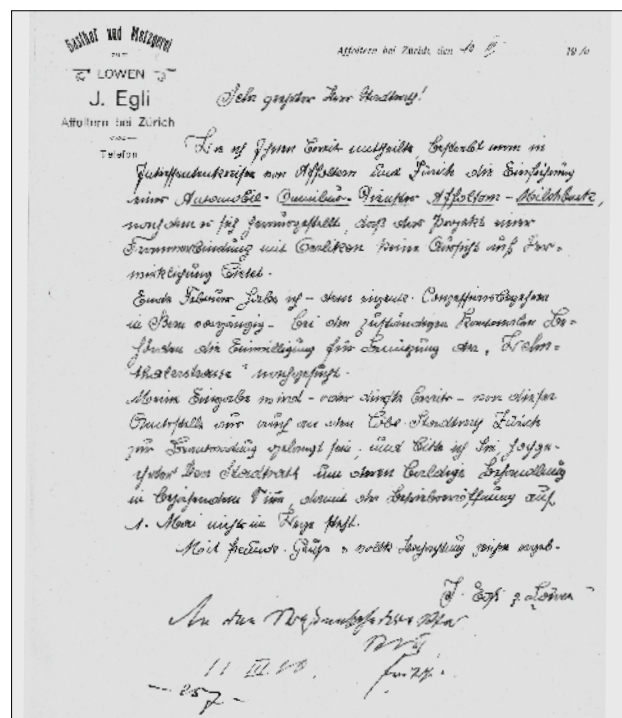 Gasthof und Metzgerei
zum
LÖWEN
J. Egli
Affoltern bei Zürich
Telefon
Affoltern bei Zürich, den 10. III. 1910
Sehr geehrter Herr Stadtrat!
Wie ich Ihnen bereits mittheilte, besteht nun in
Interessentenkreisen von Affoltern und Zürich die Einführung
einer Automobil-Omnibus-Dienstes Affoltern-Milchbuck,
nachdem es sich herausgestellt, daß das Projekt einer
Tramverbindung mit Oerlikon keine Aussicht auf Ver-
wirklichung bietet.
Ende Februar habe ich - dem eigentl. Concessionsbegehren
in Bern vorgängig - bei den zuständigen kantonalen Be-
hörden die Einwilligung für Benützung der "
" nachgesucht.
Meine Eingabe wird - oder dürfte bereits - von dieser
Amtsstelle aus auch an den Löbl. Stadtrath Zürich
zur Beantwortung gelangt sein, und bitte ich Sie, hochge-
ehrter Herr Stadtrath um deren baldige Behandlung
in bejahendem Sinn, damit der Betriebseröffnung auf
1. Mai nichts im Wege steht.
Mit freundl. Grüße & vollster Hochachtung zeichne ergeb.
J. Egli z. Löwen
An den
11 III. 10.
257